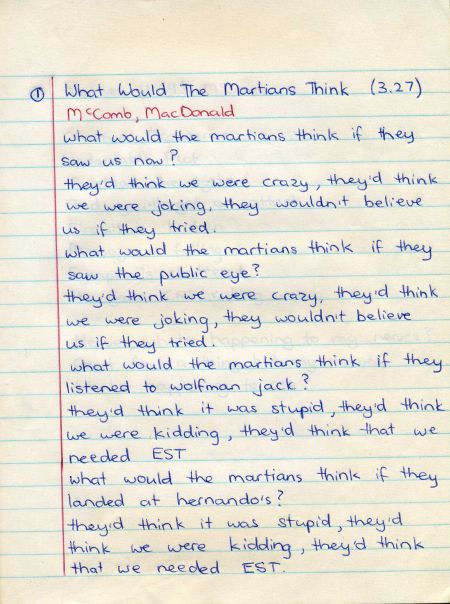 ① What Would The Martians Think (3.27)
McComb, MacDonald
what would the martians think if they
saw us now?
they'd think we were crazy, they'd think
we were joking, they wouldn't believe
us if they tried.
what would the martians think if they
saw the public eye?
they'd think we were crazy, they'd think
we were joking, they wouldn't believe
us if they tried.
what would the martians think if they
listened to wolfman jack?
they'd think it was stupid, they'd think
we were kidding, they'd think that we
needed EST
what would the martians think if they
landed at hernando's?
they'd think it was stupid, they'd
think we were kidding, they'd think
that we needed EST.